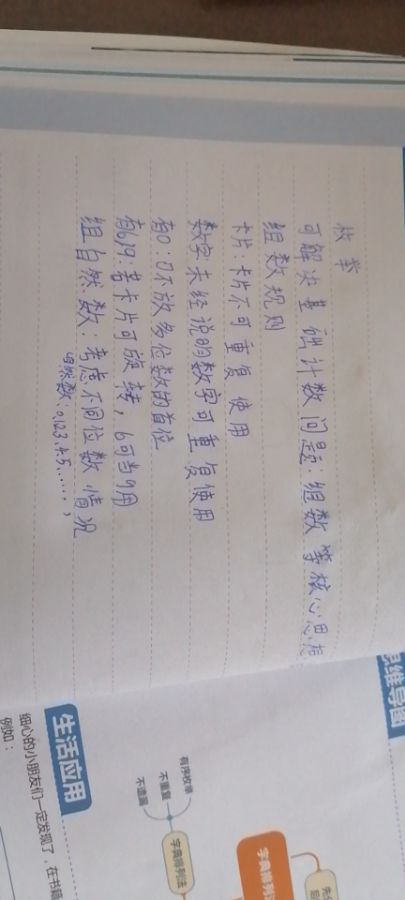 枚举
可解决基础计数问题:组数等核心思想
组数规则
卡片:卡片不可重复使用
数字未经说明数字可重复使用
有0:0不放多位数的首位
有6,9:若卡片可旋转,6可当9用
组自然数:考虑不同位数情况
自然数:0,1,2,3,4,5……,
思维导图
先
字典排列
字典排列法
有序枚举
不重复
不遗漏
生活应用
细心的小朋友们一定发现了,在书籍
例如: